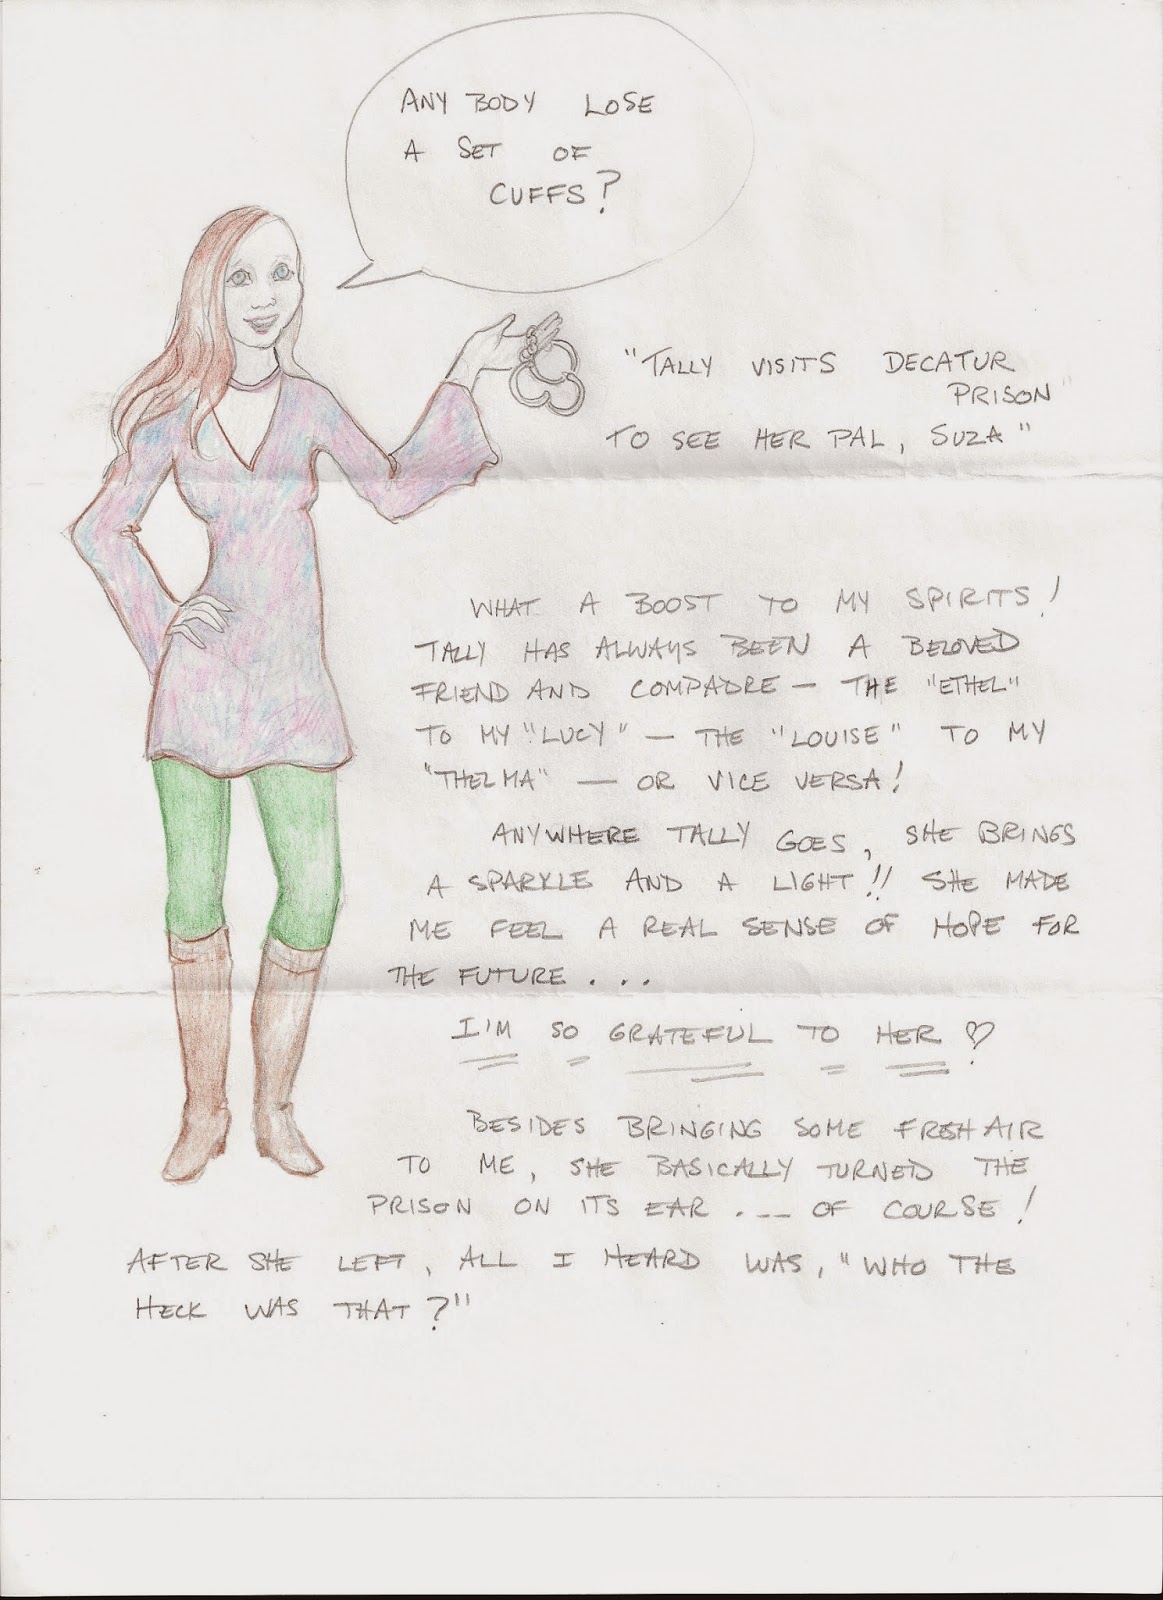 ANY BODY LOSE
A SET OF
CUFFS?
"TALLY VISITS DECATUR
PRISON"
TO SEE HER PAL, SUZA"
WHAT A BOOST TO MY SPIRITS!
TALLY HAS ALWAYS BEEN A BELOVED
FRIEND AND COMPADRE — THE "ETHEL"
TO MY "LUCY" — THE "LOUISE" TO MY
"THELMA" — OR VICE VERSA!
ANYWHERE TALLY GOES, SHE BRINGS
A SPARKLE AND A LIGHT!! SHE MADE
ME FEEL A REAL SENSE OF HOPE FOR
THE FUTURE . . .
I'M SO GRATEFUL TO HER ♡
BESIDES BRINGING SOME FRESH AIR
TO ME, SHE BASICALLY TURNED THE
PRISON ON ITS EAR . . . OF COURSE!
AFTER SHE LEFT, ALL I HEARD WAS, "WHO THE
HECK WAS THAT?"